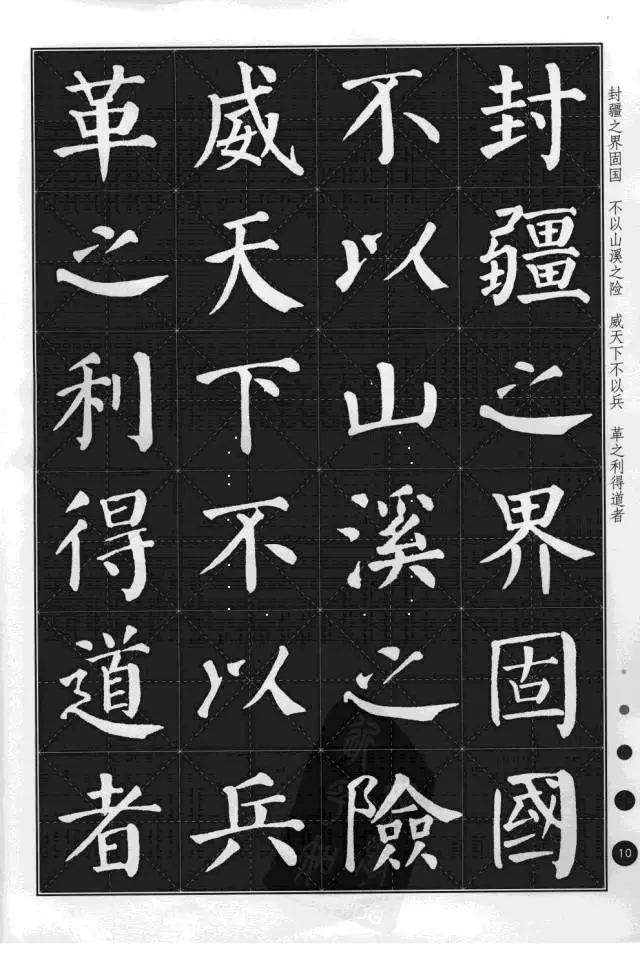 封疆之界固國
不以山溪之險
威天下不以兵
革之利得道者
封疆之界固国　不以山溪之险　威天下不以兵　革之利得道者
10